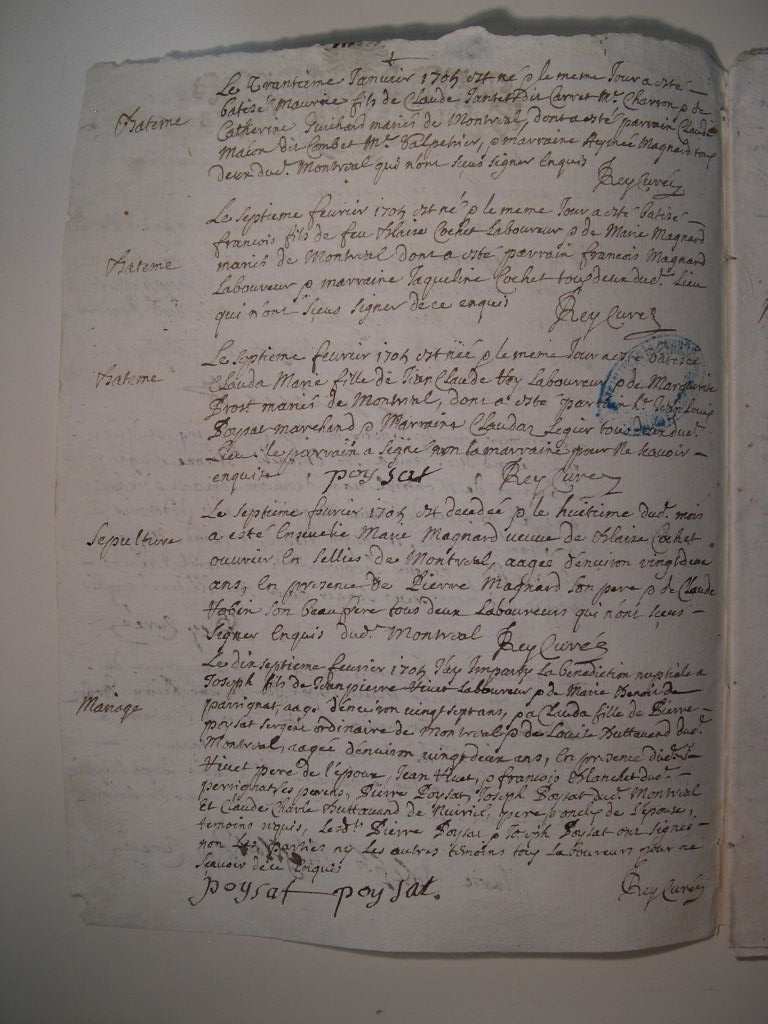 Le Trantieme Janvier 1705 est né & le meme Jour a esté
Bateme
batisé Maurice fils de Claude Jantet dit Carret Mr. Charron & de
Catherine Guichard mariés de Montreal, dont a esté parrain Claude
Maton dit Combet Mr. Salpetrier, & marraine Magnard tous
deux dud. Montreal qui n'ont sceus signer Enquis
Rey Curé
Le septieme fevrier 1705 est né & le meme Jour a esté batisé
francois fils de feu Blaise Cochet Laboureur & de Marie Magnard
Bateme
mariés de Montreal dont a esté parrain francois Magnard
Laboureur & marraine Jaqueline Cochet tous deux dud. Lieu
qui n'ont sceus signer de ce enquis
Rey Curé
Le septieme fevrier 1705 est née & le meme Jour a esté batisée
Bateme
Clauda Marie fille de Jean Claude Laboureur & de Marguerite
Brost mariés de Montreal, dont a esté parrain Jean Louis
Poysat marchand & Marraine Claudaz tous deux dud.
Lieu le parrain a signé non la marraine pour ne scavoir
enquise poysat Rey Curé
Le septieme fevrier 1705 est decedée & le huitieme dud. mois
Sepulture
a esté Ensevelie Marie Magnard veuve de Blaise Cochet
ouvrier En sellies de Montreal, aagée d'environ vingt deux
ans, En presence de Pierre Magnard son pere & de Claude
son beau pere tous deux Laboureurs qui n'ont sceus
signer Enquis dud. Montreal Rey Curé
Le dixseptieme fevrier 1705 J'ay Imparty La benediction nuptiale a
Mariage
Joseph fils de Jean pierre Hivet Laboureur & de Marie Benoit de
parrignat, aagé d'environ vingt sept ans, & a Clauda fille de Pierre
poysat sergent ordinaire de Montreal & de Louise Buttavand dud.
Montreal, aagée d'environ vingt deux ans, En presence dud.
Hivet pere de l'epoux, Jean Hivet, & francois Blanchet dud.
perrignat ses parens, Pierre Poysat, Joseph Poysat dud. Montreal
Et Claude Buttavand de, pere & oncles de l'epouse,
temoins requis, Lesd. Pierre Poysat & Joseph Poysat ont signés
non Les parties ny Les autres temoins tous Laboureurs pour ne
scavoir de ce Enquis
poysat poysat. Rey Curé